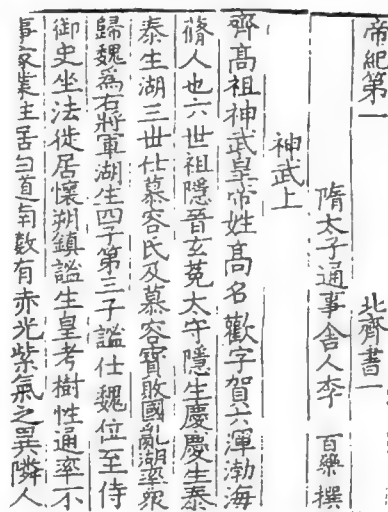 帝紀第一 北齊書一
隋太子通事舍人李 百藥 撰
神武上
齊高祖神武皇帝姓高名歡字賀六渾渤海
蓨人也六世祖隱晉玄菟太守隱生慶慶生泰
泰生湖三世仕慕容氏及慕容寶敗國亂湖率衆
歸魏爲右將軍湖生四子第三子謐仕魏位至侍
御史坐法徙居懷朔鎮謐生皇考樹性通率不
事家業住居白道南數有赤光紫氣之異隣人